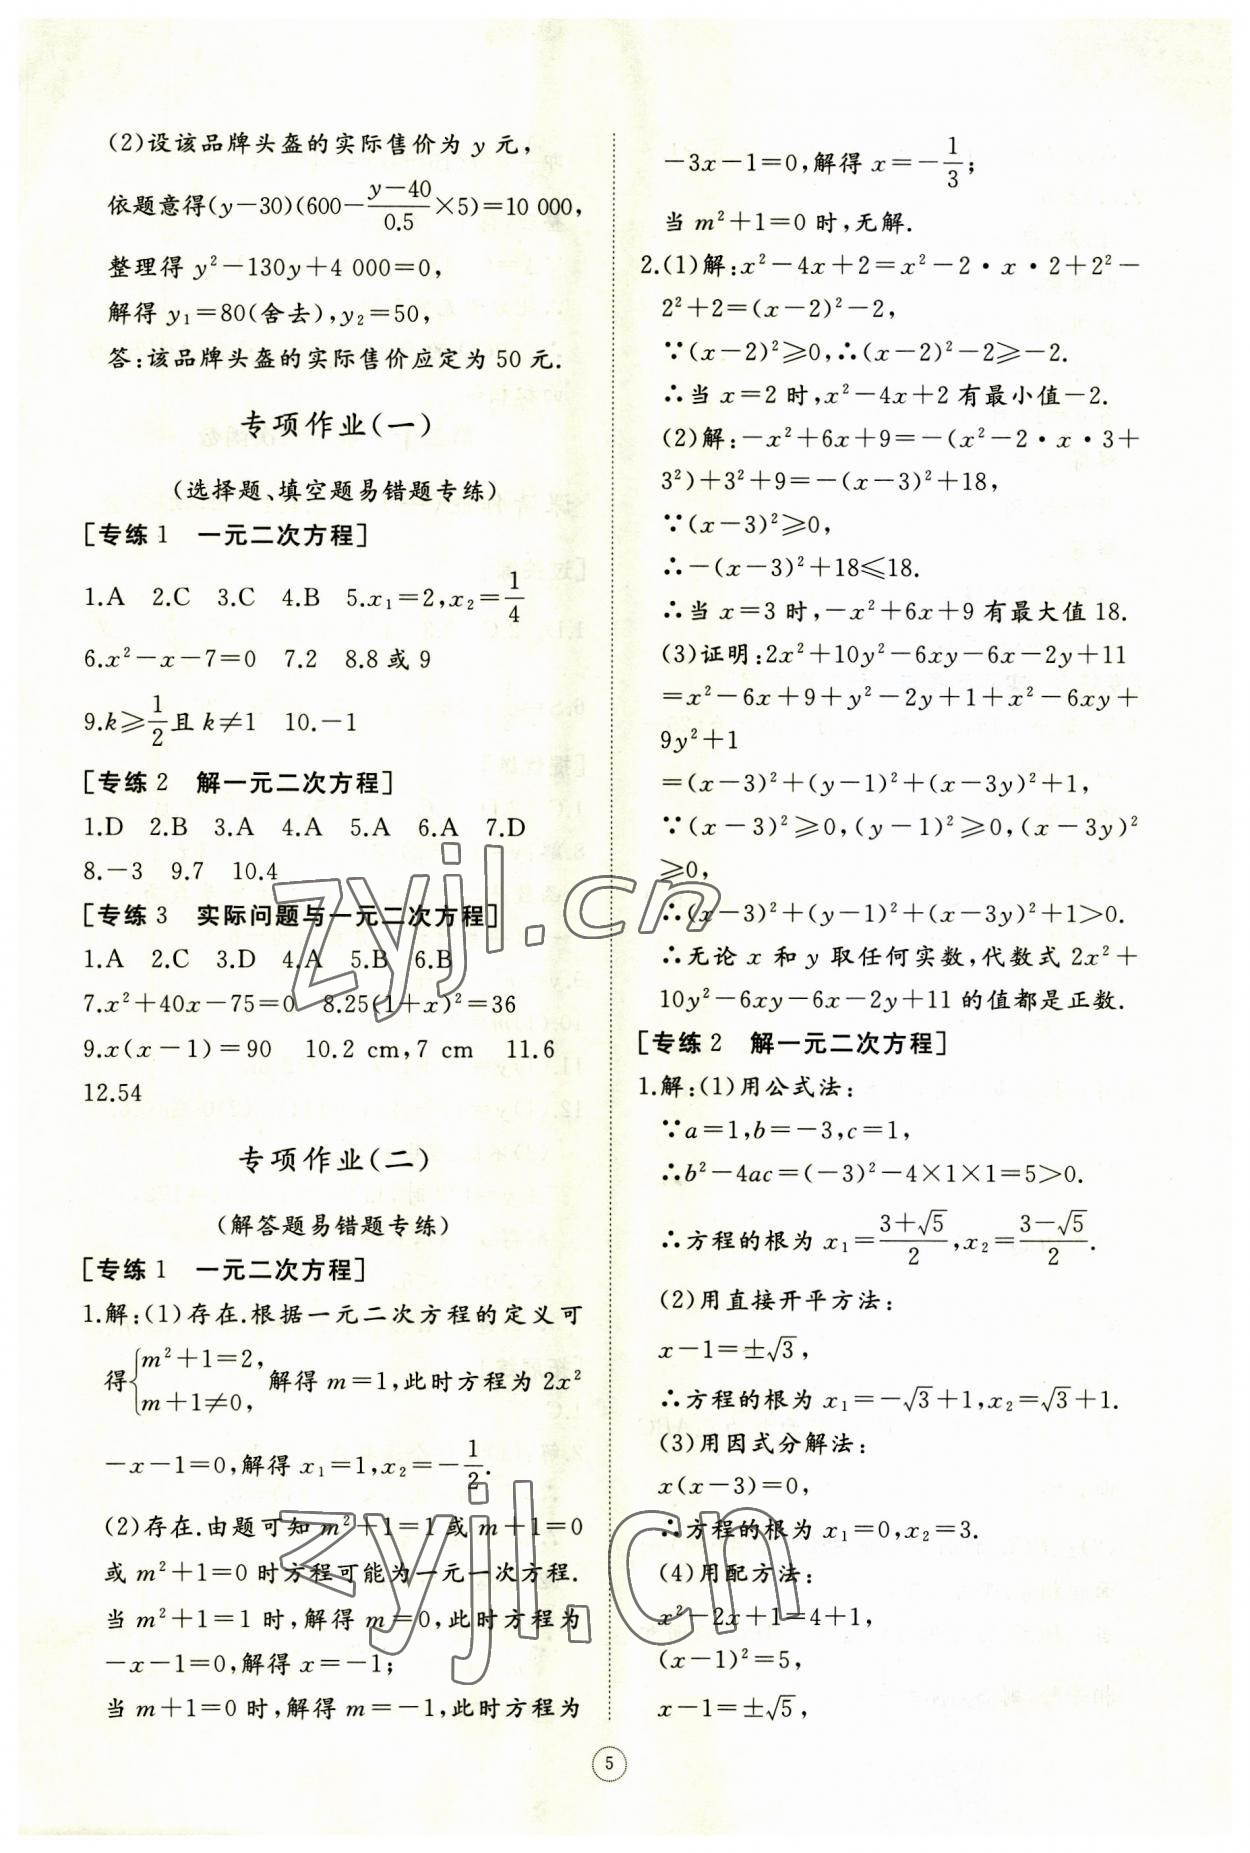 (2)设该品牌头盔的实际售价为 y 元,
依题意得(y－30)(600－\frac{y－40}{0.5}×5)＝10 000,
整理得 y²－130y＋4 000＝0,
解得 y₁＝80(舍去),y₂＝50,
答:该品牌头盔的实际售价应定为 50 元.
专项作业(一)
(选择题、填空题易错题专练)
[专练 1　一元二次方程]
1.A　2.C　3.C　4.B　5.x₁＝2,x₂＝\frac{1}{4}
6.x²－x－7＝0　7.2　8.8 或 9
9.k≥\frac{1}{2}且 k≠1　10.－1
[专练 2　解一元二次方程]
1.D　2.B　3.A　4.A　5.A　6.A　7.D
8.－3　9.7　10.4
[专练 3　实际问题与一元二次方程]
1.A　2.C　3.D　4.A　5.B　6.B
7.x²＋40x－75＝0　8.25(1＋x)²＝36
9.x(x－1)＝90　10.2 cm,7 cm　11.6
12.54
专项作业(二)
(解答题易错题专练)
[专练 1　一元二次方程]
1.解:(1)存在.根据一元二次方程的定义可
得{m²＋1＝2, m＋1≠0, 解得 m＝1,此时方程为 2x²
－x－1＝0,解得 x₁＝1,x₂＝－\frac{1}{2}.
(2)存在.由题可知 m²＋1＝1 或 m＋1＝0
或 m²＋1＝0 时方程可能为一元一次方程.
当 m²＋1＝1 时,解得 m＝0,此时方程为
－x－1＝0,解得 x＝－1;
当 m＋1＝0 时,解得 m＝－1,此时方程为
－3x－1＝0,解得 x＝－\frac{1}{3};
当 m²＋1＝0 时,无解.
2.(1)解:x²－4x＋2＝x²－2・x・2＋2²－
2²＋2＝(x－2)²－2,
∵(x－2)²≥0,∴(x－2)²－2≥－2.
∴当 x＝2 时,x²－4x＋2 有最小值－2.
(2)解:－x²＋6x＋9＝－(x²－2・x・3＋
3²)＋3²＋9＝－(x－3)²＋18,
∵(x－3)²≥0,
∴－(x－3)²＋18≤18.
∴当 x＝3 时,－x²＋6x＋9 有最大值 18.
(3)证明:2x²＋10y²－6xy－6x－2y＋11
＝x²－6x＋9＋y²－2y＋1＋x²－6xy＋
9y²＋1
＝(x－3)²＋(y－1)²＋(x－3y)²＋1,
∵(x－3)²≥0,(y－1)²≥0,(x－3y)²
≥0,
∴(x－3)²＋(y－1)²＋(x－3y)²＋1>0.
∴无论 x 和 y 取任何实数,代数式 2x²＋
10y²－6xy－6x－2y＋11 的值都是正数.
[专练 2　解一元二次方程]
1.解:(1)用公式法:
∵a＝1,b＝－3,c＝1,
∴b²－4ac＝(－3)²－4×1×1＝5>0.
∴方程的根为 x₁＝\frac{3＋√5}{2},x₂＝\frac{3－√5}{2}.
(2)用直接开平方法:
x－1＝±√3,
∴方程的根为 x₁＝－√3＋1,x₂＝√3＋1.
(3)用因式分解法:
x(x－3)＝0,
∴方程的根为 x₁＝0,x₂＝3.
(4)用配方法:
x²－2x＋1＝4＋1,
(x－1)²＝5,
x－1＝±√5,
5
zyjl.cn
zyjl.cn